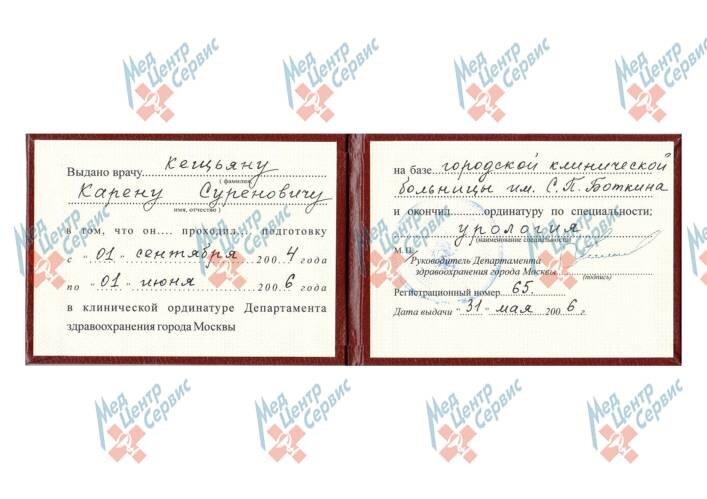 Мед Центр Сервис
Мед Центр Сервис
Мед Центр Сервис
Мед Центр Сервис
Выдано врачу Кещьяну
( фамилия
Карену Суреновичу
имя, отчество )
в том, что он.... проходил... подготовку
с "01" сентября 2004 года
по "01" июня 2006 года
в клинической ординатуре Департамента
здравоохранения города Москвы
на базе городской клинической
больницы им. С.П. Боткина
и окончил ординатуру по специальности;
урология
(наименование специальности)
М.П.
Руководитель Департамента
здравоохранения города Москвы
(подпись)
Регистрационный номер 65
Дата выдачи "31" мая 2006 г.
Мед Центр Сервис
Мед Центр Сервис
Мед Центр Сервис
Мед Центр Сервис